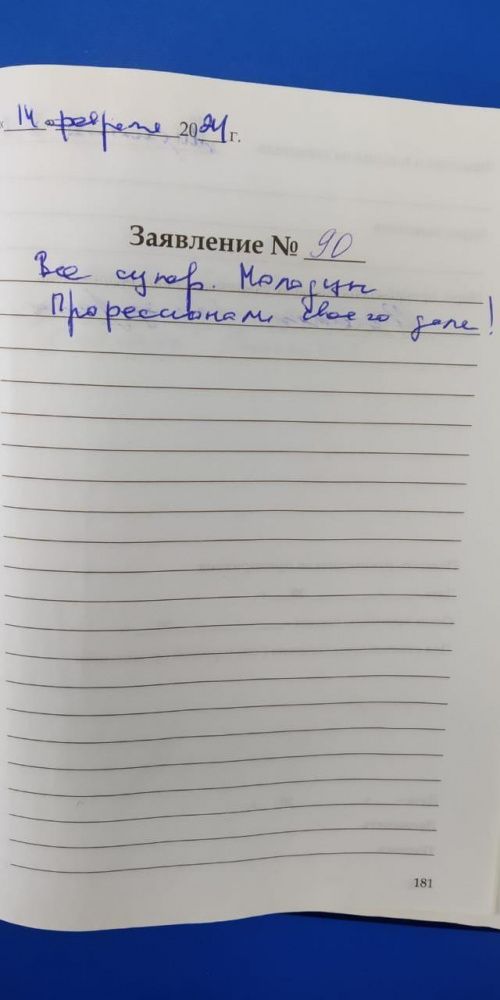 « 14 февраля 2024 г.
Заявление № 90
Все супер. Молодцы
Профессионалы своего дела!
181